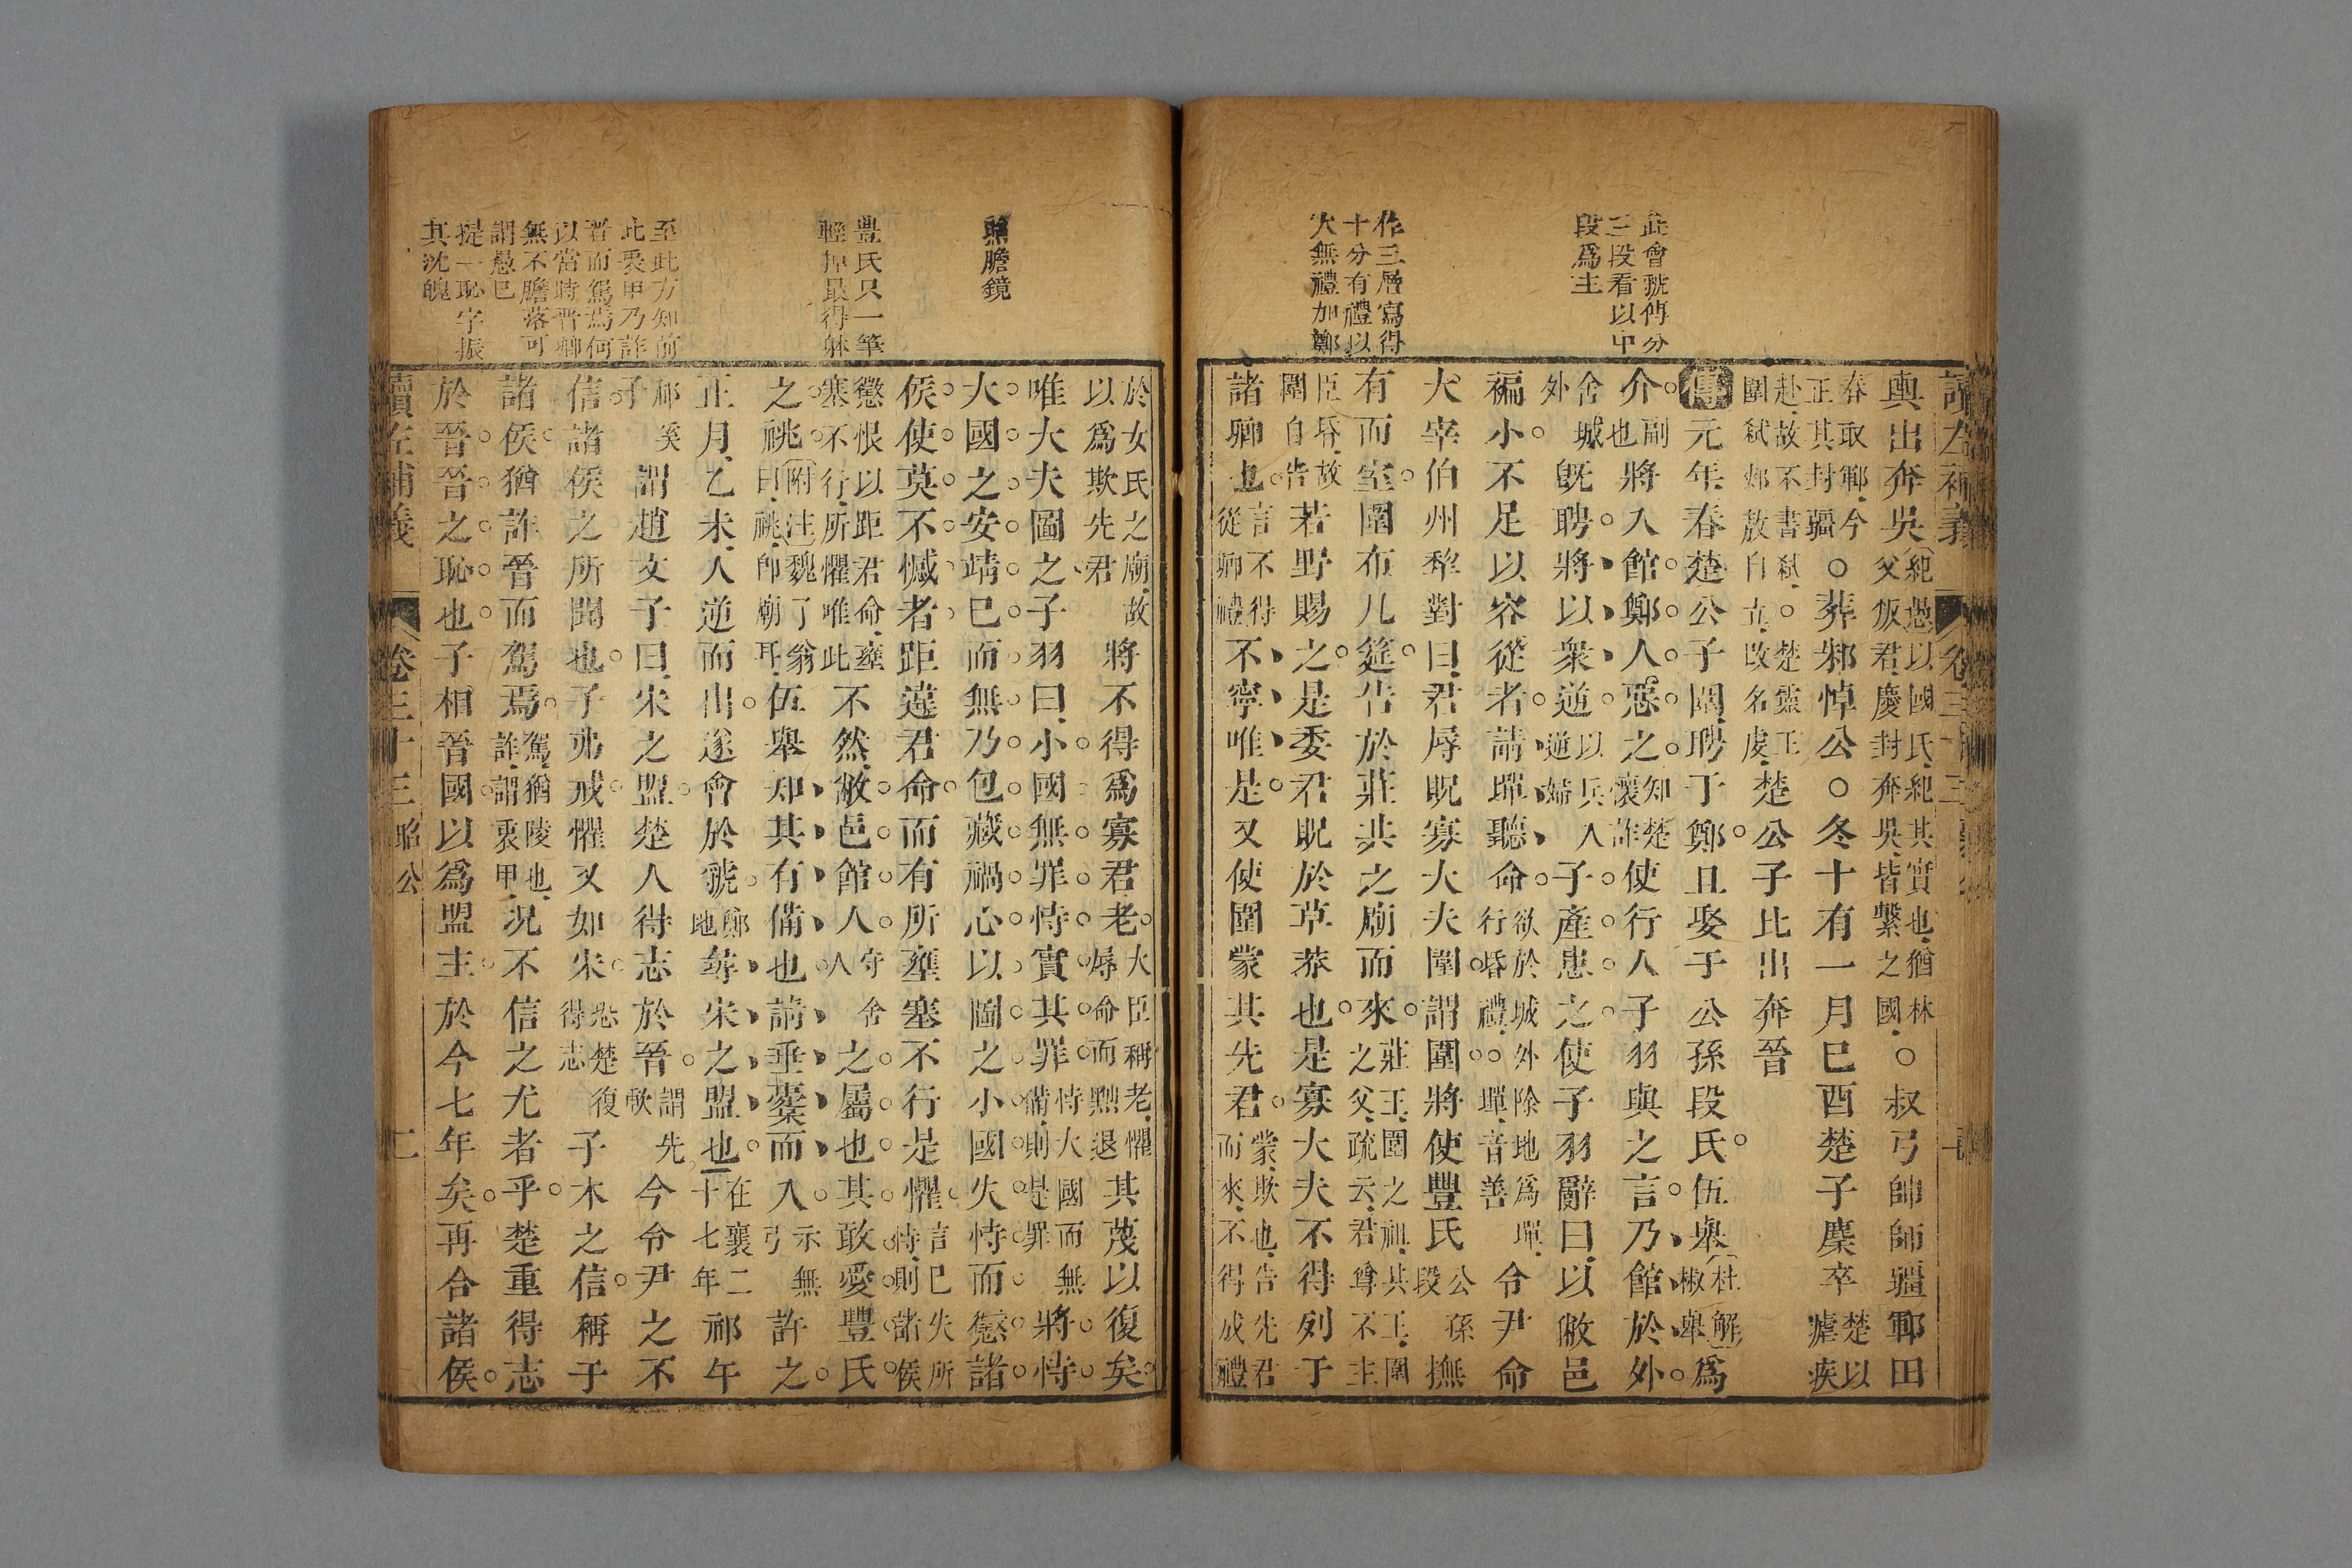 此會虢傳分
三段看以中
段爲主
作三層寫得
十分有禮以
大無禮加鄭
讀左補義 卷三十三
輿出奔吳紀過以國氏紀其實也猶林父叛君慶封奔吳皆繫之國○叔弓帥師疆鄆田
春取鄆今正其封疆○葬邾悼公○冬十有一月己酉楚子麇卒楚以瘧疾
赴故不書弑○楚靈王圍弑郟敖自立改名虔楚公子比出奔晉
傳元年春楚公子圍聘于鄭且娶于公孫段氏伍舉杜解椒舉爲
介副也將入館鄭人惡之知楚懷詐使行人子羽與之言乃館於外
舍城外既聘將以衆逆以兵入逆婦子產患之使子羽辭曰以敝邑
褊小不足以容從者請墠聽命欲於城外除地爲墠行昏禮○墠音善令尹命
大宰伯州犂對曰君辱貺寡大夫圍謂圍將使豐氏公孫段撫
有而室圍布几筵告於莊共之廟而來莊王圍之祖共王圍之父疏云君尊不主
臣昏故圍自告若野賜之是委君貺於草莽也是寡大夫不得列于
諸卿也言不得從卿禮不寧唯是又使圍蒙其先君蒙欺也告先君而來不得成禮
照膽鏡
豐氏只一筆
輕掉最得躰
至此方知前
此裹甲乃詐
晉而駕焉何
以當時晉卿
無不膽落可
謂愚已
提一恥字振
其沈魄
於女氏之廟故以爲欺先君將不得爲寡君老大臣稱老懼辱命而黜退其蔑以復矣
唯大夫圖之子羽曰小國無罪恃實其罪恃大國而無備則是罪將恃
大國之安靖已而無乃包藏禍心以圖之小國失恃而懲諸
侯使莫不憾者距違君命而有所壅塞不行是懼言已失所恃則諸侯
懲恨以距君命壅塞不行所懼唯此不然敝邑館人守舍人之屬也其敢愛豐氏
之祧附注魏了翁曰祧卽廟耳伍舉知其有備也請垂櫜而入示無弓許之
正月乙未入逆而出遂會於虢鄭地尋宋之盟也在襄二十七年祁午
祁奚子謂趙文子曰宋之盟楚人得志於晉謂先歃今令尹之不
信諸侯之所聞也子弗戒懼又如宋恐楚復得志子木之信稱于
諸侯猶詐晉而駕焉駕猶陵也詐謂裹甲況不信之尤者乎楚重得志
於晉晉之恥也子相晉國以爲盟主於今七年矣再合諸侯
讀左補義 卷三十三 昭公 二